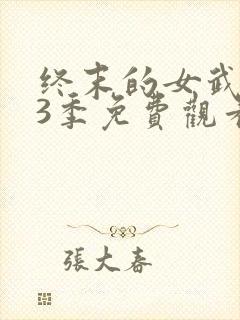 终末的女武
3季免費觀看
張大春